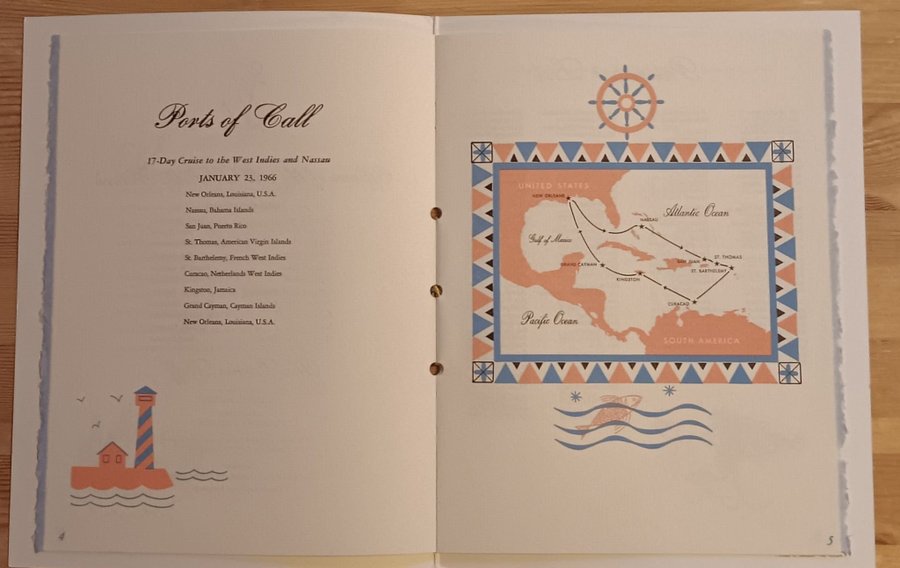 Ports of Call
17-Day Cruise to the West Indies and Nassau
JANUARY 23, 1966
New Orleans, Louisiana, U.S.A.
Nassau, Bahama Islands
San Juan, Puerto Rico
St. Thomas, American Virgin Islands
St. Barthelemy, French West Indies
Curacao, Netherlands West Indies
Kingston, Jamaica
Grand Cayman, Cayman Islands
New Orleans, Louisiana, U.S.A.
4
UNITED STATES
NEW ORLEANS
Atlantic Ocean
NASSAU
Gulf of Mexico
ST. THOMAS
SAN JUAN
GRAND CAYMAN
ST. BARTHELEMY
KINGSTON
CURACAO
Pacific Ocean
SOUTH AMERICA
5